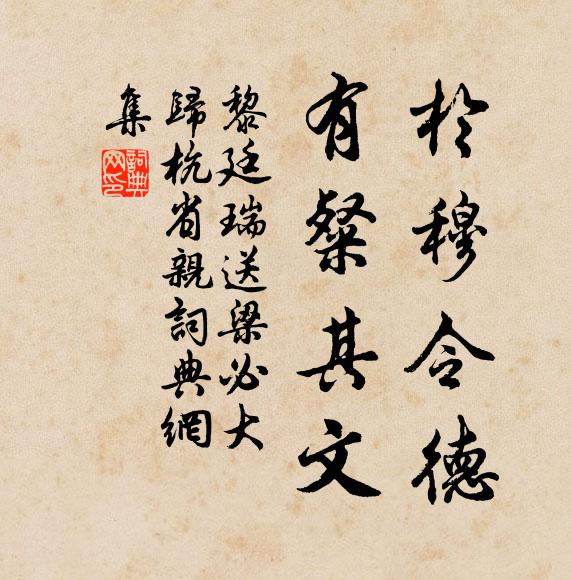 於穆令德
有粲其文
黎廷瑞送梁必大
歸杭省親詞典網
集
詞典
网印